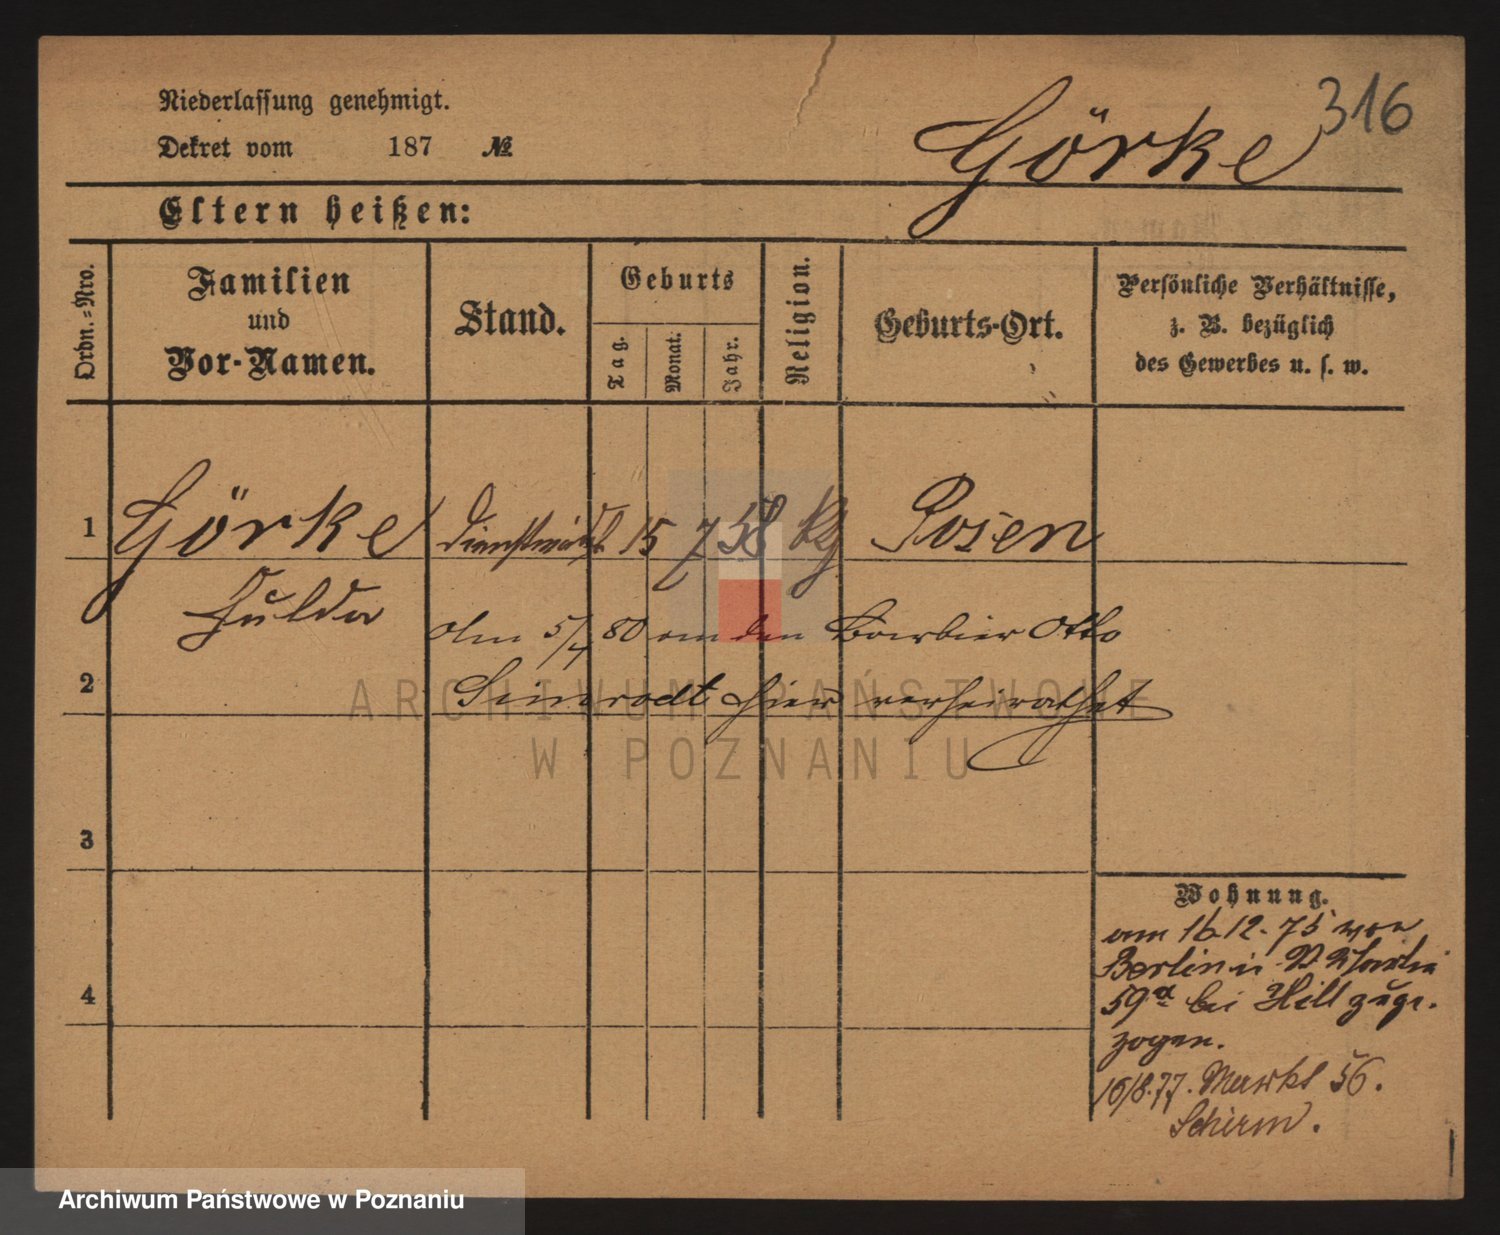 316
Niederlassung genehmigt.
Dekret vom 187 №
Görke
Eltern heißen:
Ordn.-Nro.
Familien
und
Vor-Namen.
Stand.
Geburts
Tag.
Monat.
Jahr.
Religion.
Geburts-Ort.
Persönliche Verhältnisse,
z. B. bezüglich
des Gewerbes u. s. w.
1 Görke 15 7 58 Posen
Hulda
Am 5/7 80 an den Barbier Otto
2 hier verheirathet
ARCHIWUM PAŃSTWOWE
W POZNANIU
3
4
Wohnung.
am 16 12. 75 von
Berlin
59a bei Hill zuge-
zogen.
16/8. 77. Markt 56.
Schirm.
Archiwum Państwowe w Poznaniu